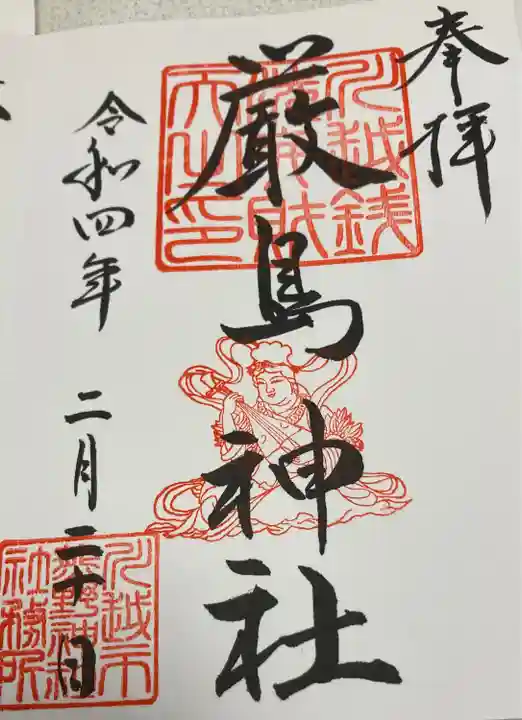 奉拝
厳島神社
川越銭
財
天之印
令和四年 二月二十日
川越市
熊野神社
社務所